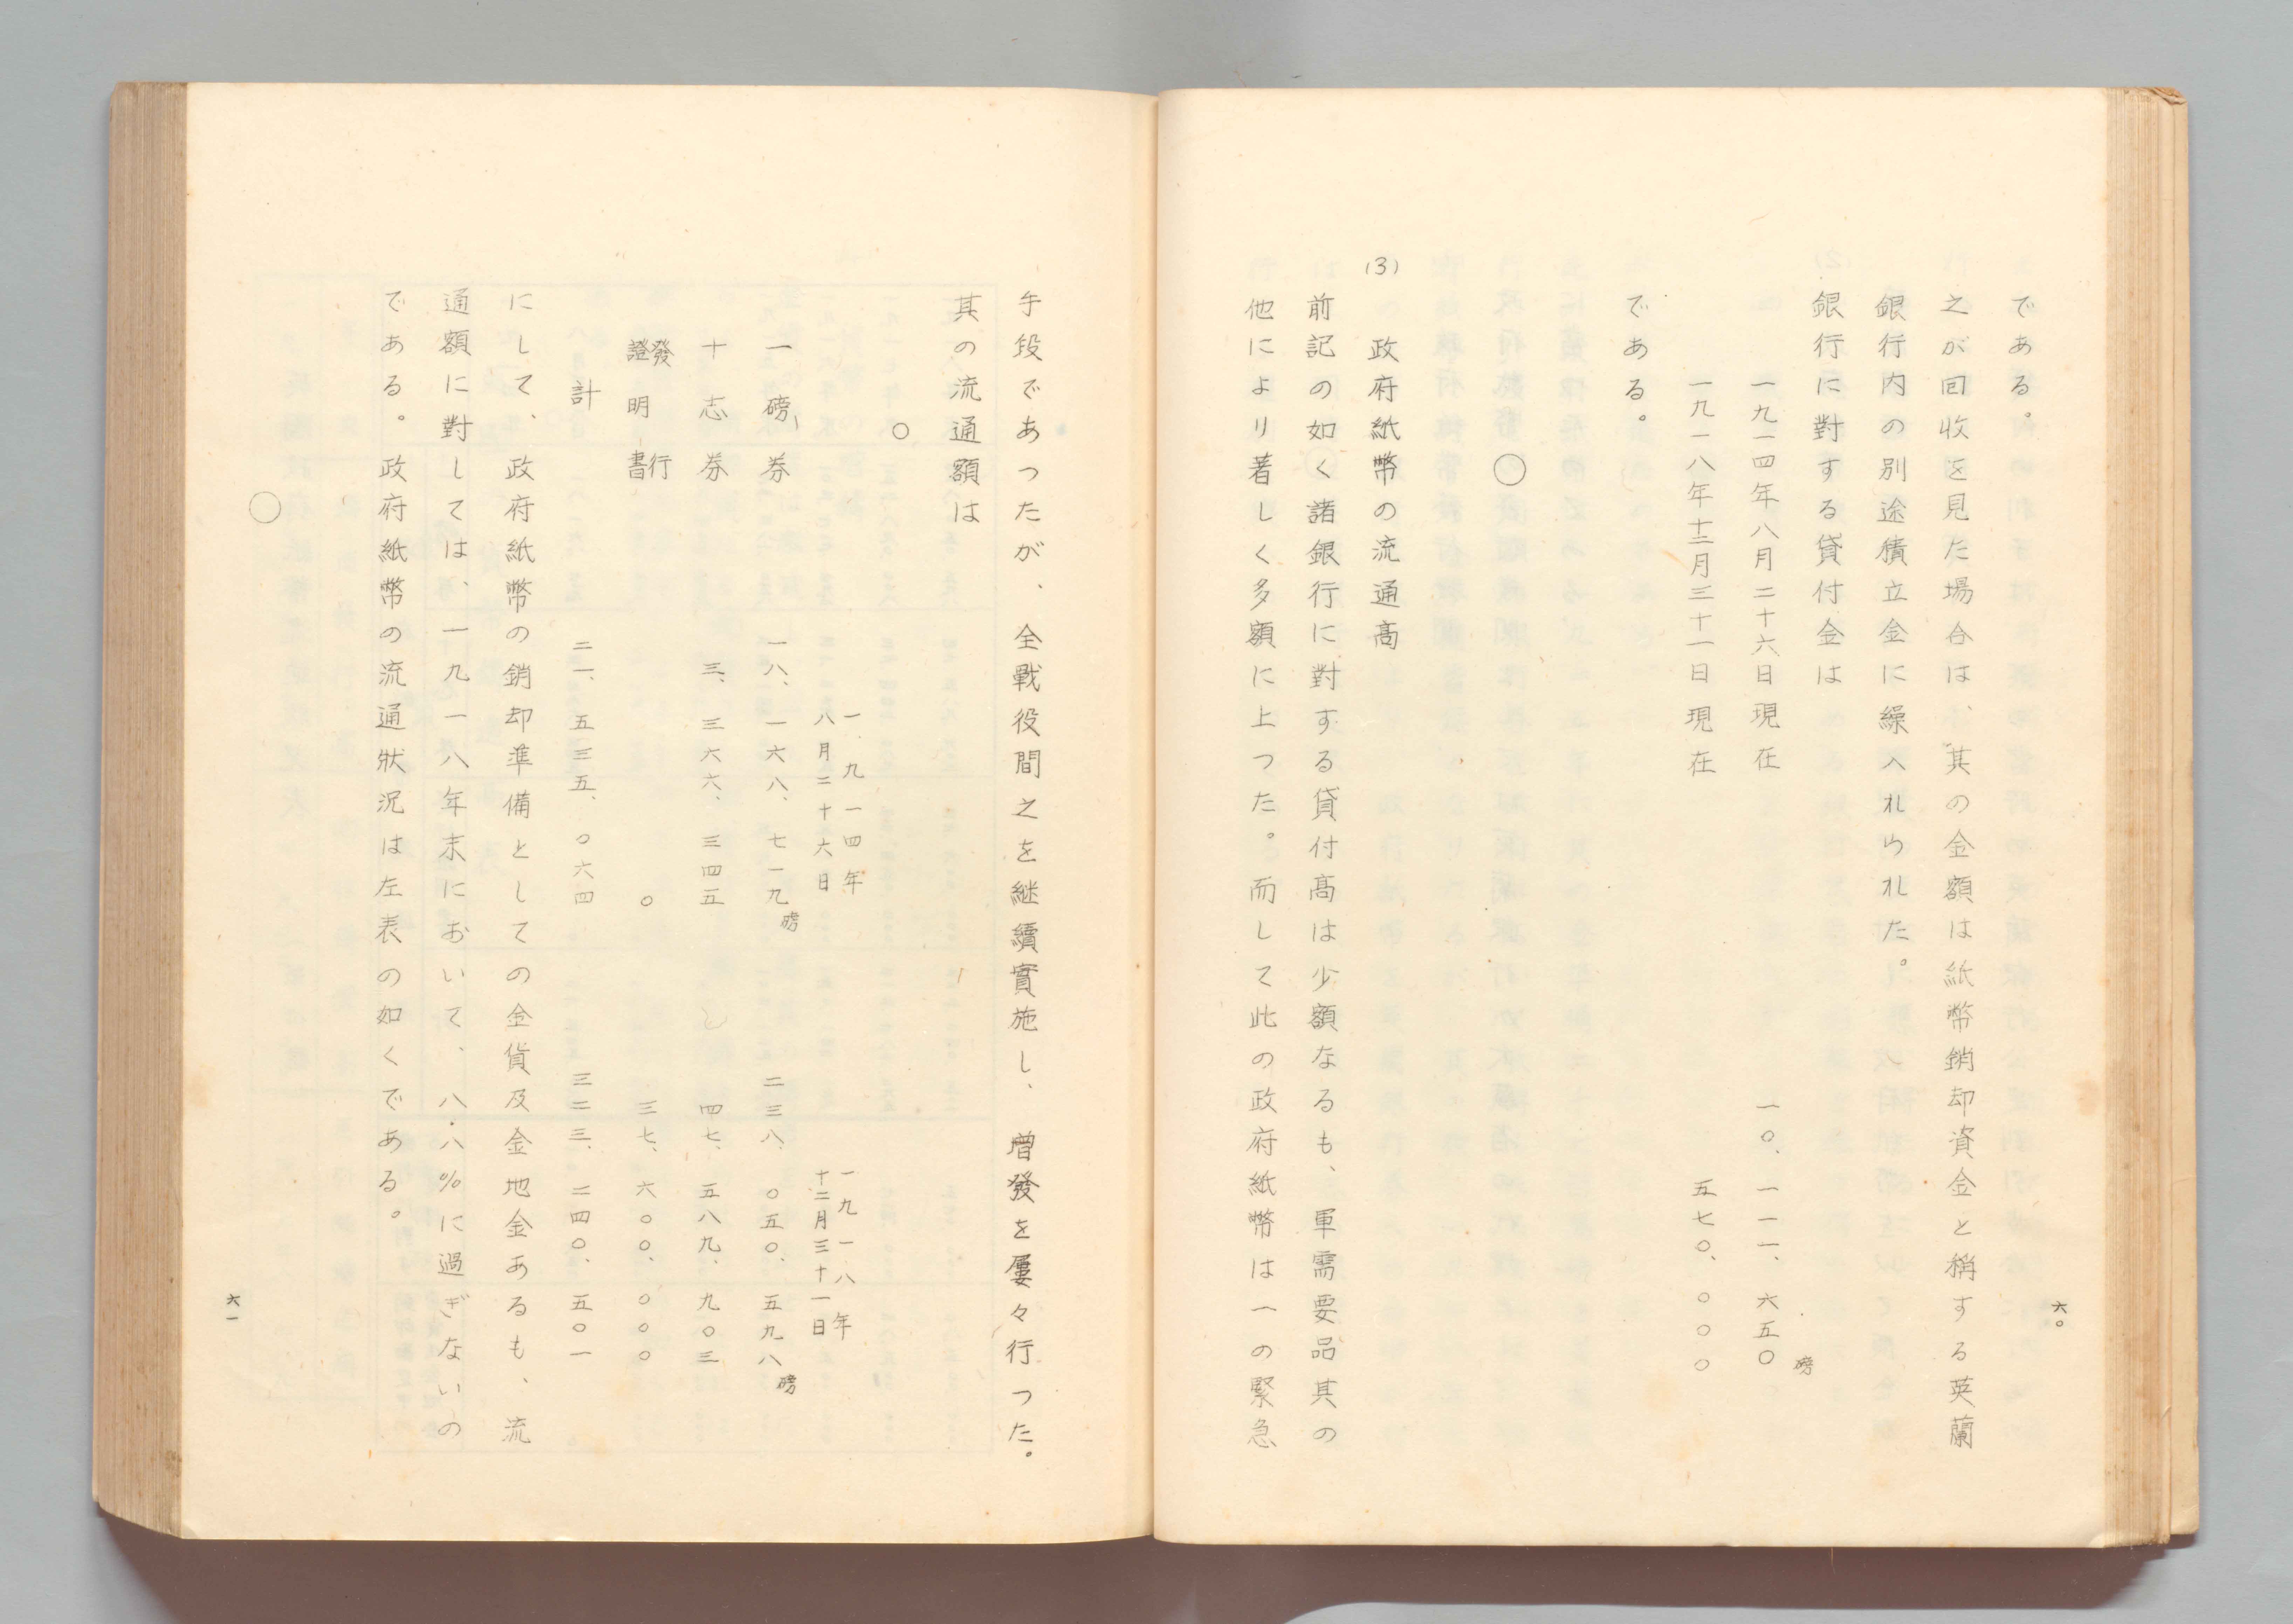 である。
之が回收を見た場合は、其の金額は紙幣銷却資金と稱する英蘭
銀行内の別途積立金に繰入れられた。
銀行に對する貸付金は
一九一四年八月二十六日現在　一〇、一一一、六五〇磅
一九一八年十二月三十一日現在　五七〇、〇〇〇
である。
○
(3)　政府紙幣の流通高
前記の如く諸銀行に對する貸付高は少額なるも、軍需要品其の
他により著しく多額に上つた。而して此の政府紙幣は一の緊急
六〇
手段であつたが、全戰役間之を継續實施し、増發を屢々行つた。
其の流通額は
○
一九一四年八月二十六日　一九一八年十二月三十一日
一磅券　一八、一六八、七一九磅　二三八、〇五〇、五九八磅
十志券　三、三六六、三四五　四七、五八九、九〇三
發行證明書　〇　三七、六〇〇、〇〇〇
計　二一、五三五、〇六四　三二三、二四〇、五〇一
にして、政府紙幣の銷却準備としての金貨及金地金あるも、流
通額に對しては、一九一八年末において、八.八%に過ぎないの
である。政府紙幣の流通狀況は左表の如くである。
○
六一